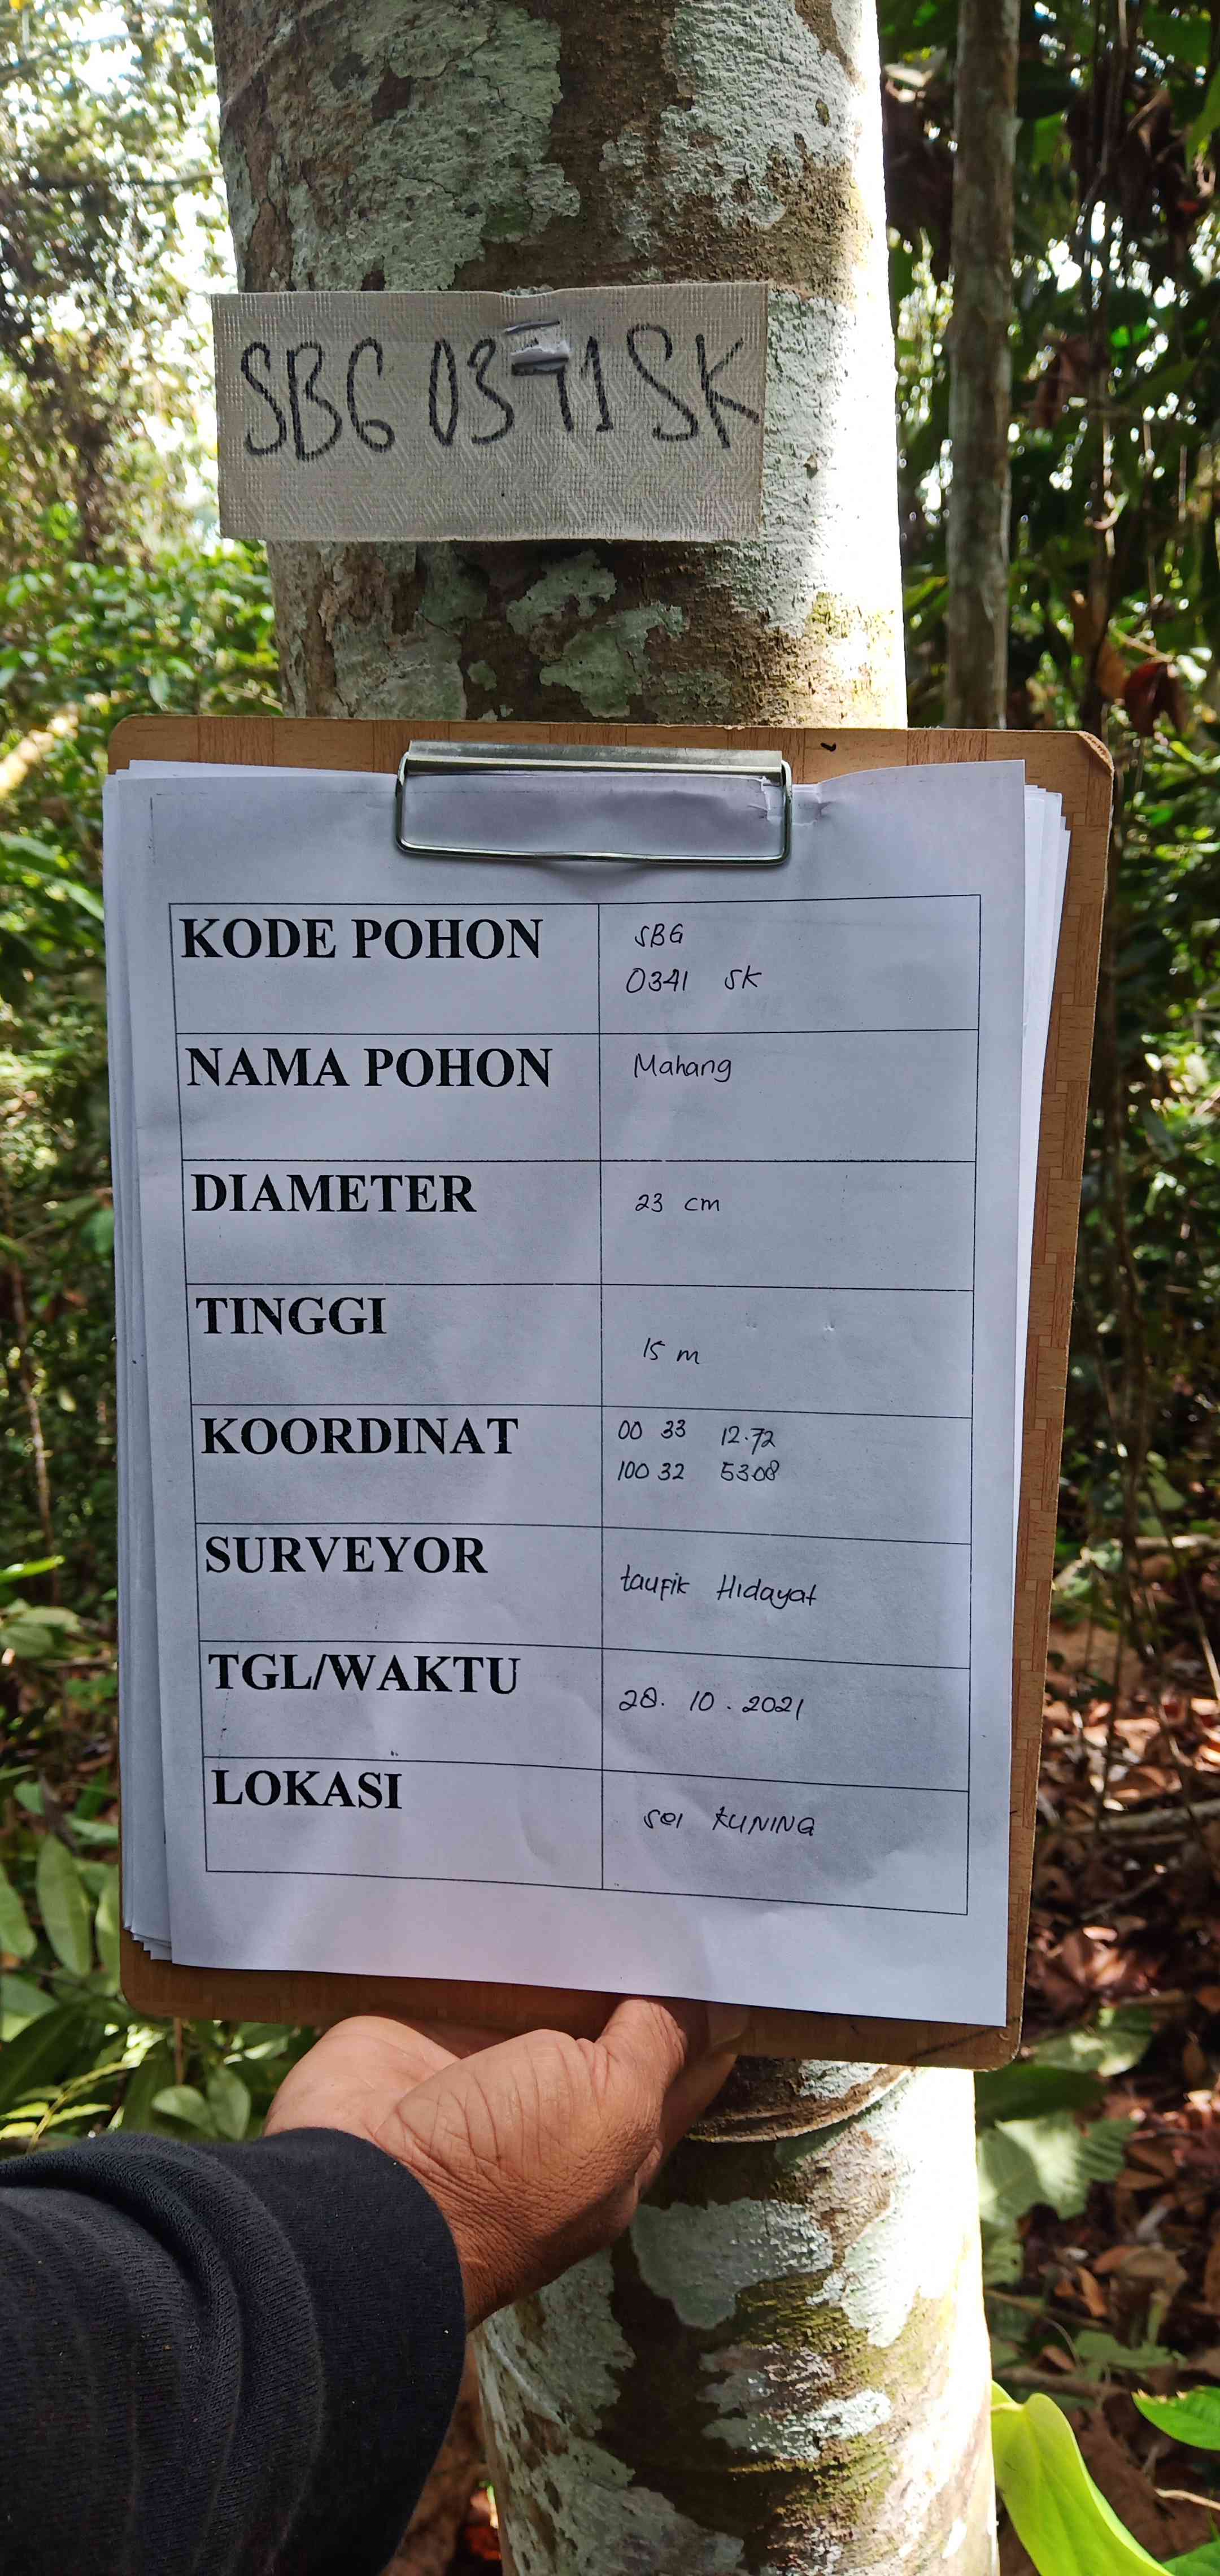 SBG 0341 SK
KODE POHON
SBG
0341 SK
NAMA POHON
Mahang
DIAMETER
23 cm
TINGGI
15 m
KOORDINAT
00 33 12.72
100 32 53.08
SURVEYOR
taufik Hidayat
TGL/WAKTU
28. 10 . 2021
LOKASI
sei KUNING